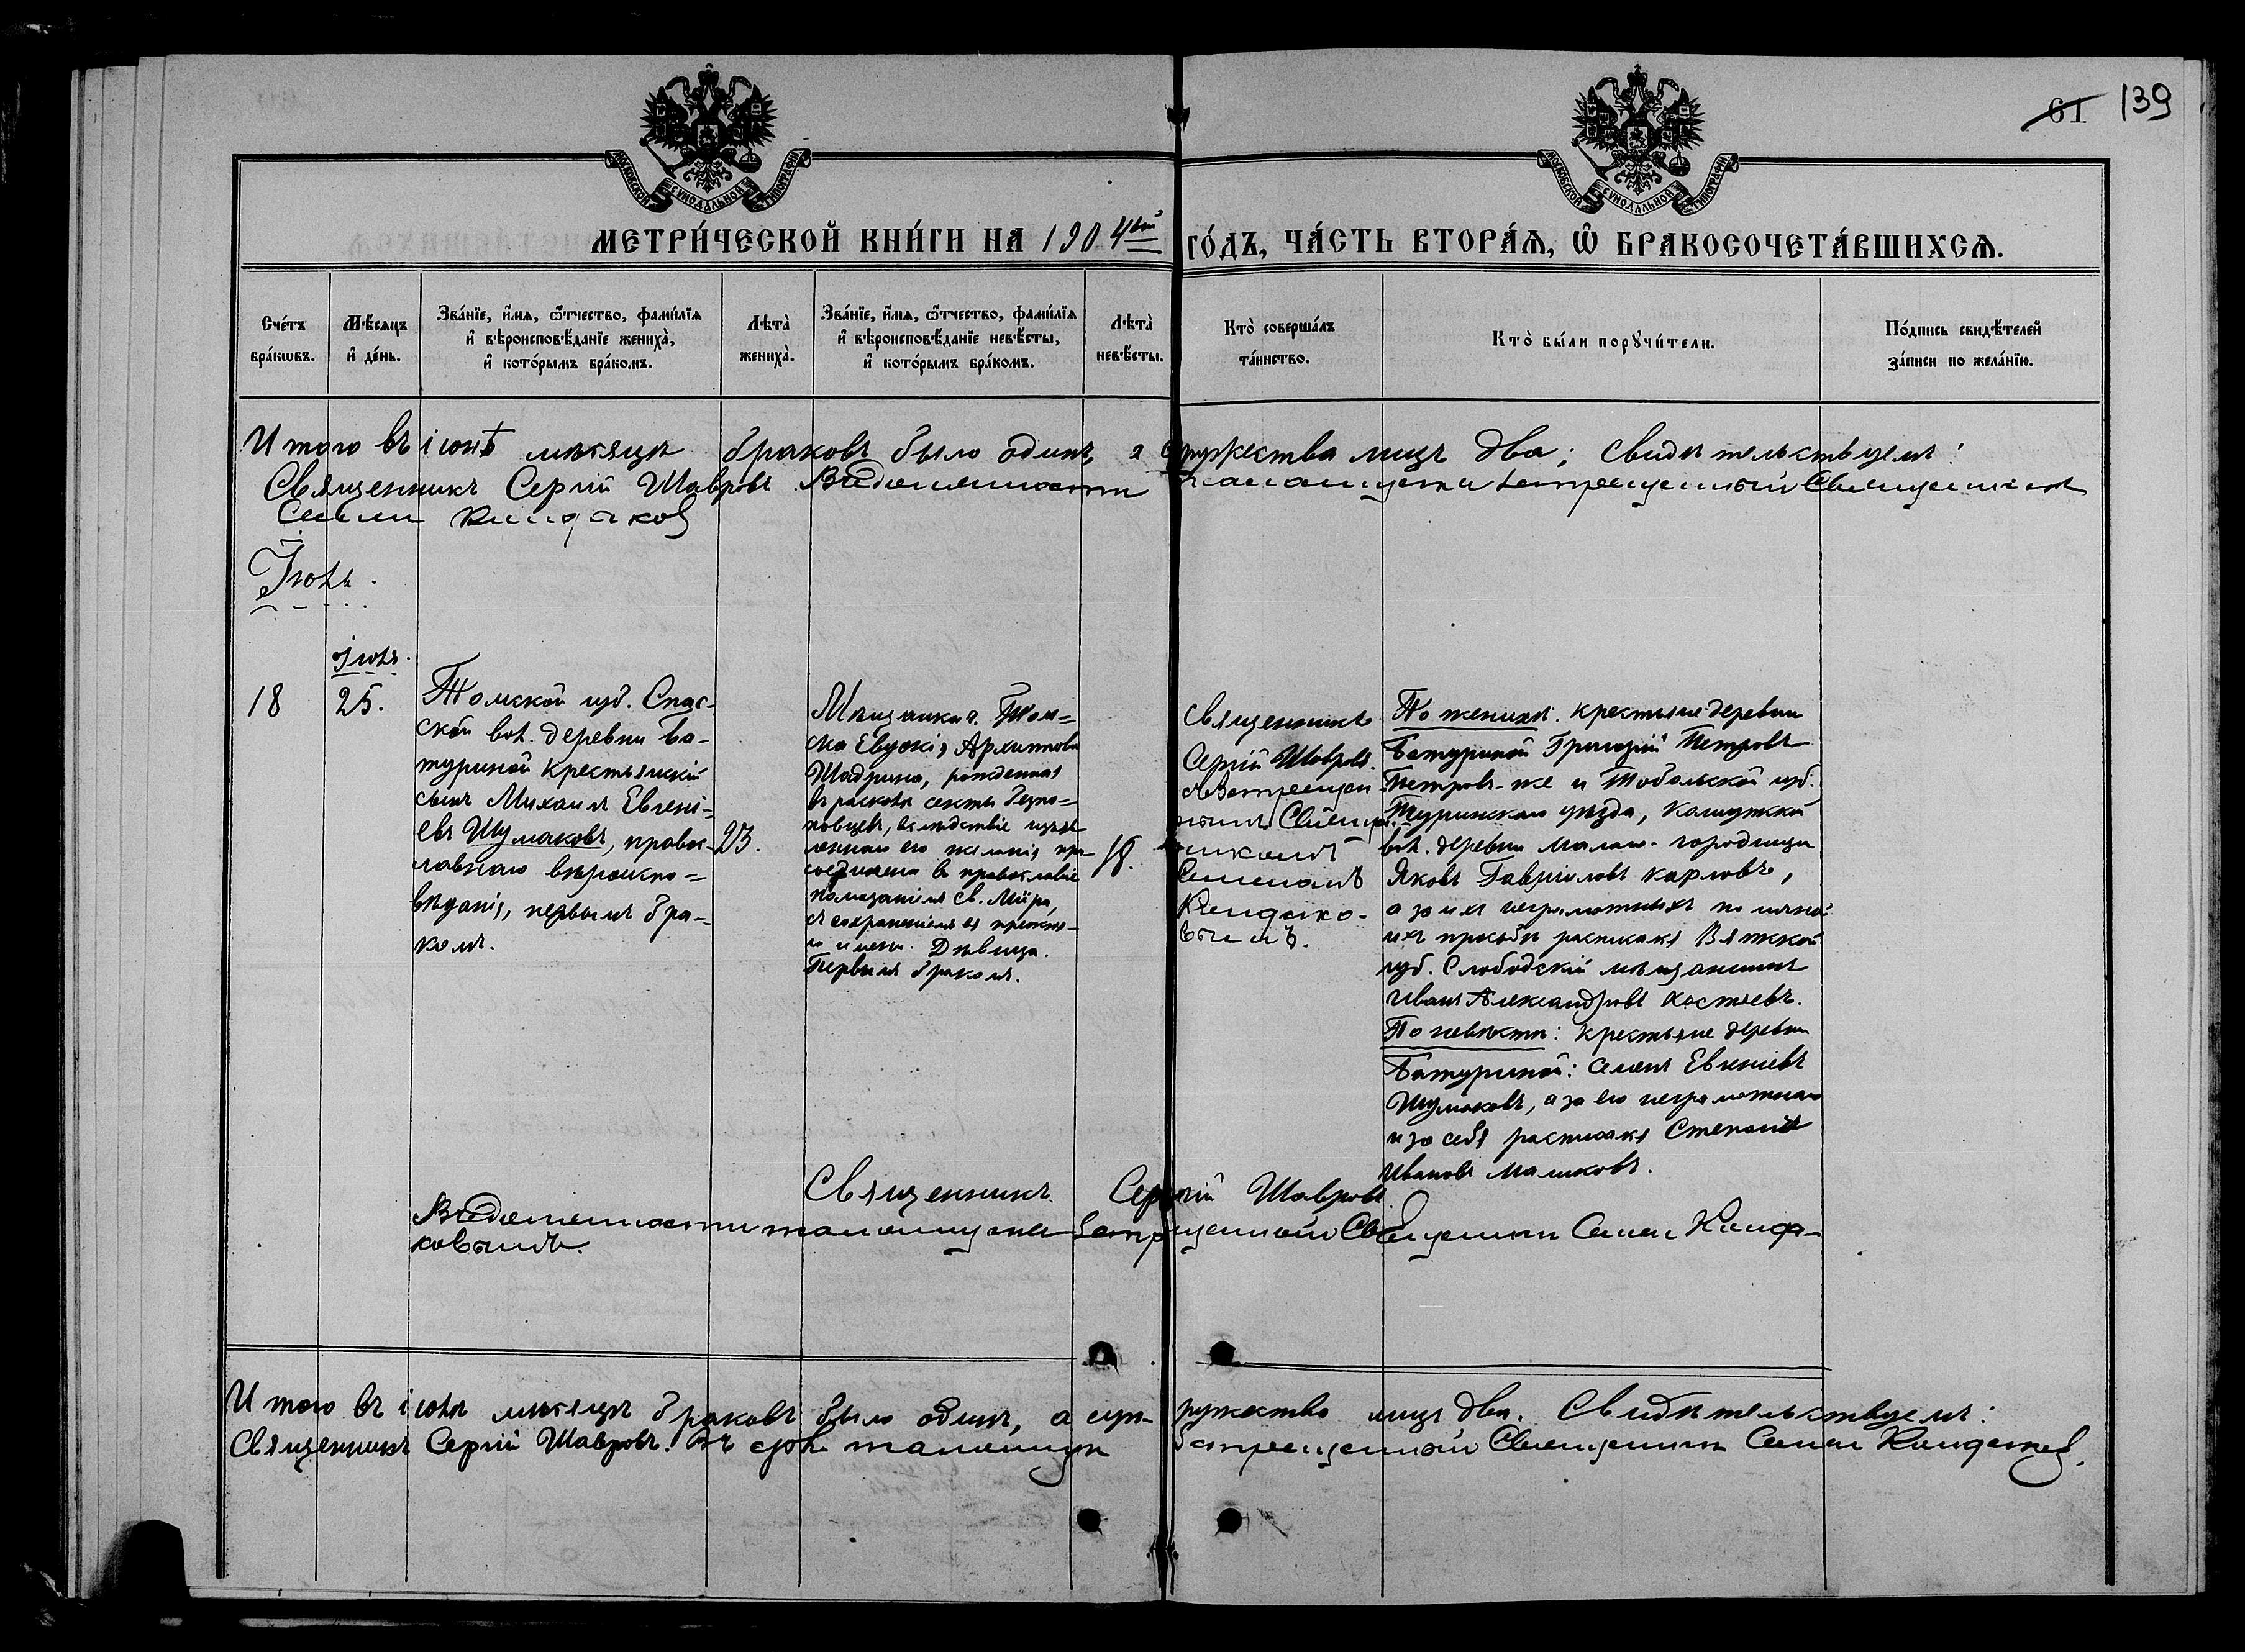 61 139
МОСКОВСКОЙ СѴНОДАЛЬНОЙ ТИПОГРАФІИ
МОСКОВСКОЙ СѴНОДАЛЬНОЙ ТИПОГРАФІИ
МЕТРИ́ЧЕСКОЙ КНИ́ГИ НА 1904ый ГО́ДЪ, ЧА́СТЬ ВТОРА́Ѧ, Ѽ БРАКОСОЧЕТА́ВШИХСѦ.
Сче́тъ
бра́кѡвъ.
Мѣ́сѧцъ
и҆ де́нь.
Зва́нїе, и҆́мѧ, ѻ҆́тчество, фами́лїѧ
и҆ вѣроисповѣ́данїе жениха̀,
и҆ кото́рымъ бра́комъ.
Лѣта̀
жениха̀.
Зва́нїе, и҆́мѧ, ѻ҆́тчество, фами́лїѧ
и҆ вѣроисповѣ́данїе невѣ́сты,
и҆ кото́рымъ бра́комъ.
Лѣта̀
невѣ́сты.
Кто̀ соверша́лъ
та́инство.
Кто̀ бы́ли порꙋчи́тели.
По́дпись свидѣ́телей
за́писи по жела́нїю.
Итого въ іюнѣ мѣсяцѣ браковъ было одинъ, а супружества лицъ два; свидѣтельствуемъ:
Священникъ Сергій Шавровъ. Священник
Іюль.
Іюль.
18
25.
Томской губ. Спас-
ской вол. деревни Ба-
туриной крестьянскій
сынъ Михаилъ Евгені-
евъ Шумаковъ, правос-
лавнаго вѣроиспо-
вѣданія, первымъ бра-
комъ.
23.
Мѣщанка г. Том-
ска Евдокія Архиппова
Шадрина, рожденная
въ расколѣ секты безпо-
повцевъ, вслѣдствіе изъяв-
леннаго ею желанія при-
соединена въ православіе
помазаніемъ Св. Мѵра,
съ сохраненіемъ ея прежня-
го имени. Дѣвица.
Первымъ бракомъ.
18.
Священникъ
Сергій Шавровъ
По женихѣ: крестьяне деревни
Батуриной Григорій Петровъ
Петровъ-же и Тобольской губ.
Туринскаго уѣзда, Кашукской
вол. деревни Малаго-городища
Яковъ Гавріиловъ Карловъ,
а за ихъ неграмотныхъ по личной
ихъ просьбѣ расписался Вятской
губ. Слободскій мѣщанинъ
Иванъ Александровъ Хостяевъ.
По невѣстѣ: крестьяне деревни
Батуриной: Семенъ Евгеніевъ
Шумаковъ, а за его неграмотнаго
и за себя расписался Степанъ
Ивановъ Машковъ.
Священникъ Сергій Шавровъ
Итого въ іюлѣ мѣсяцѣ браковъ было одинъ, а супружество лицъ два. Свидѣтельствуемъ:
Священникъ Сергій Шавровъ. Священник